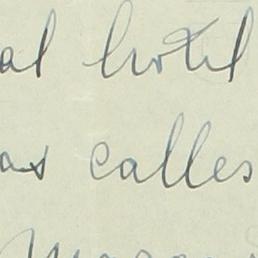 al hotel
as calles